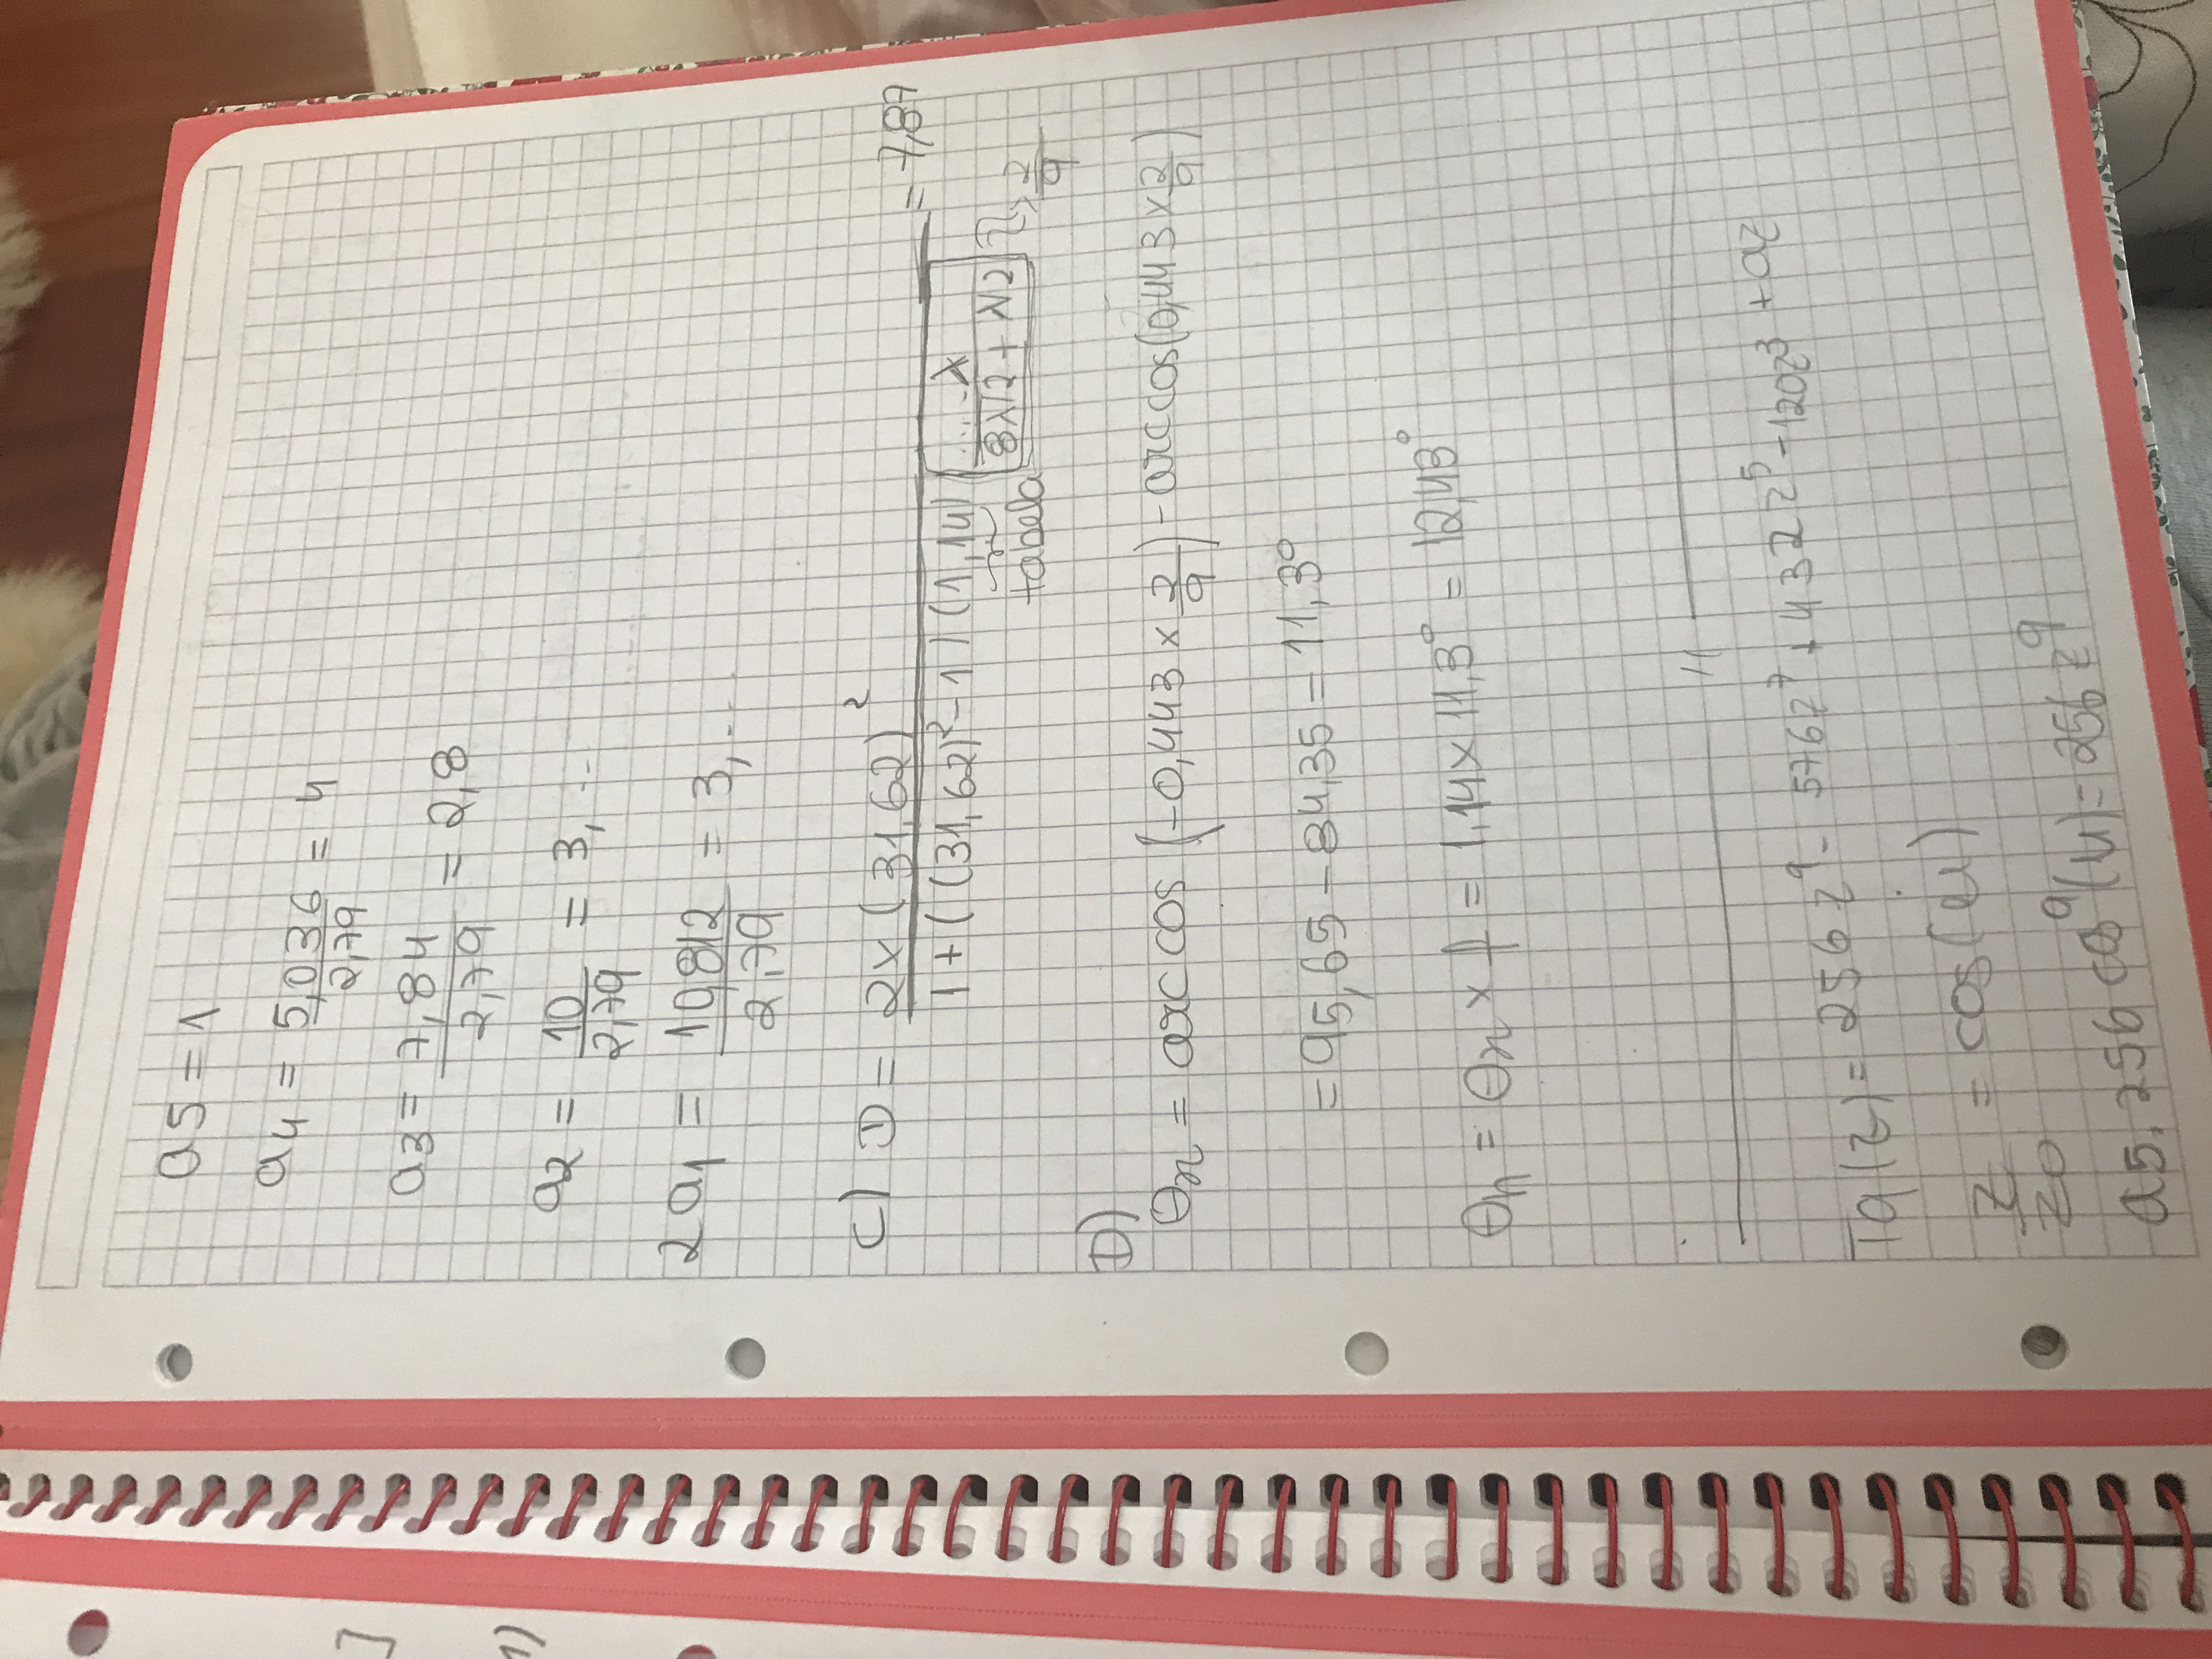 ]
1)
a5 = 1
a4 = 5,036 / 2,79 = 4
a3 = 7,84 / 2,79 = 2,8
a2 = 10 / 2,79 = 3, ...
2a1 = 10,812 / 2,79 = 3, ...
C) D = 2x (31,62)² / 1 + ((31,62)² - 1) (1,14) ....λ / 8λ/2 + λ/2 = 7,87
tabela
2/9
D)
θr = arc cos (-0,443 x 2/9) - arc cos (0,443 x 2/9)
= 95,65 - 84,35 = 11,3°
θh = θr x f = 1,14 x 11,3° = 12,43°
T9(z) = 256z⁹ - 576z⁷ + 432z⁵ - 120z³ + 9z
z / z0 = cos(u)
a5.256 cos⁹(u) = 256z⁹